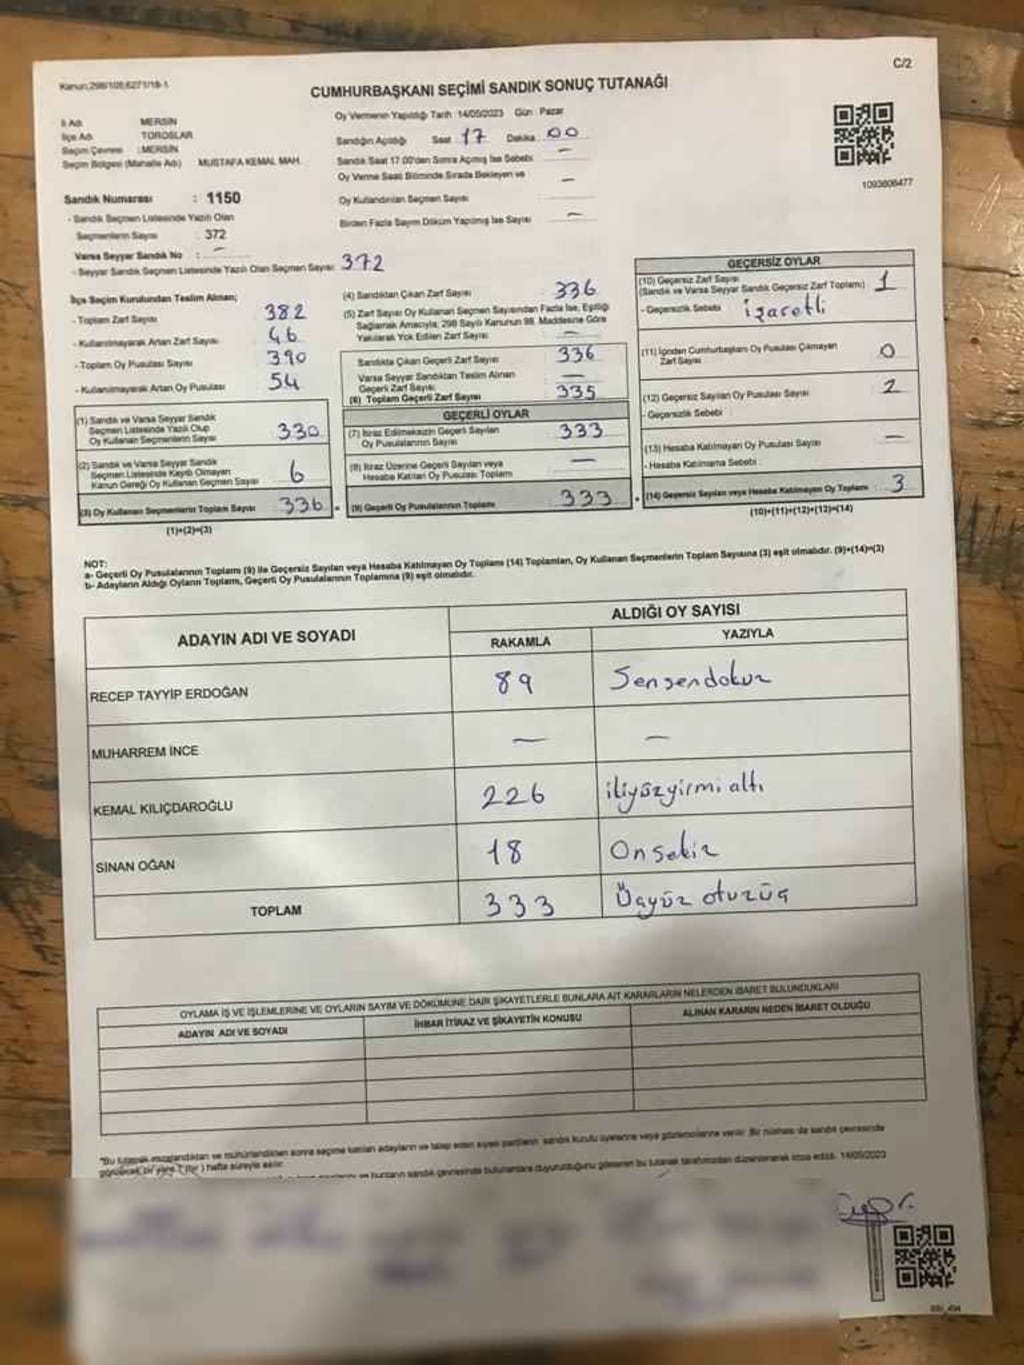 Kanun:298/105;6271/18-1
C/2
CUMHURBAŞKANI SEÇİMİ SANDIK SONUÇ TUTANAĞI
İl Adı : MERSİN
İlçe Adı : TOROSLAR
Seçim Çevresi : MERSİN
Seçim Bölgesi (Mahalle Adı) : MUSTAFA KEMAL MAH.
Oy Vermenin Yapıldığı Tarih :14/05/2023 Gün : Pazar
Sandığın Açıldığı Saat : 17 Dakika : 00
Sandık Saat 17.00'den Sonra Açılmış İse Sebebi : —
Oy Verme Saati Bitiminde Sırada Bekleyen ve
Oy Kullandırılan Seçmen Sayısı : —
Birden Fazla Sayım Döküm Yapılmış İse Sayısı : —
1093606477
Sandık Numarası : 1150
- Sandık Seçmen Listesinde Yazılı Olan
Seçmenlerin Sayısı : 372
Varsa Seyyar Sandık No : —
- Seyyar Sandık Seçmen Listesinde Yazılı Olan Seçmen Sayısı : 372
İlçe Seçim Kurulundan Teslim Alınan;
- Toplam Zarf Sayısı 382
- Kullanılmayarak Artan Zarf Sayısı : 46
- Toplam Oy Pusulası Sayısı 390
- Kullanılmayarak Artan Oy Pusulası : 54
(1) Sandık ve Varsa Seyyar Sandık
Seçmen Listesinde Yazılı Olup
Oy Kullanan Seçmenlerin Sayısı 330
(2) Sandık ve Varsa Seyyar Sandık
Seçmen Listesinde Kayıtlı Olmayan
Kanun Gereği Oy Kullanan Seçmen Sayısı 6
(3) Oy Kullanan Seçmenlerin Toplam Sayısı 336
(1)+(2)=(3)
(4) Sandıktan Çıkan Zarf Sayısı 336
(5) Zarf Sayısı Oy Kullanan Seçmen Sayısından Fazla İse, Eşitliği
Sağlamak Amacıyla; 298 Sayılı Kanunun 98. Maddesine Göre
Yakılarak Yok Edilen Zarf Sayısı : —
Sandıkta Çıkan Geçerli Zarf Sayısı 336
Varsa Seyyar Sandıktan Teslim Alınan
Geçerli Zarf Sayısı —
(6) Toplam Geçerli Zarf Sayısı 335
GEÇERLİ OYLAR
(7) İtiraz Edilmeksizin Geçerli Sayılan
Oy Pusulalarının Sayısı 333
(8) İtiraz Üzerine Geçerli Sayılan veya
Hesaba Katılan Oy Pusulası Toplamı —
(9) Geçerli Oy Pusulalarının Toplamı 333
GEÇERSİZ OYLAR
(10) Geçersiz Zarf Sayısı
(Sandık ve Varsa Seyyar Sandık Geçersiz Zarf Toplamı) 1
- Geçersizlik Sebebi : İşaretli
(11) İçinden Cumhurbaşkanı Oy Pusulası Çıkmayan
Zarf Sayısı 0
(12) Geçersiz Sayılan Oy Pusulası Sayısı 2
- Geçersizlik Sebebi :
(13) Hesaba Katılmayan Oy Pusulası Sayısı —
- Hesaba Katılmama Sebebi :
(14) Geçersiz Sayılan veya Hesaba Katılmayan Oy Toplamı 3
(10)+(11)+(12)+(12)=(14)
NOT:
a- Geçerli Oy Pusulalarının Toplamı (9) ile Geçersiz Sayılan veya Hesaba Katılmayan Oy Toplamı (14) Toplamları, Oy Kullanan Seçmenlerin Toplam Sayısına (3) eşit olmalıdır. (9)+(14)=(3)
b- Adayların Aldığı Oyların Toplamı, Geçerli Oy Pusulalarının Toplamına (9) eşit olmalıdır.
ADAYIN ADI VE SOYADI
ALDIĞI OY SAYISI
RAKAMLA YAZIYLA
RECEP TAYYİP ERDOĞAN 89 Sensendokuz
MUHARREM İNCE — —
KEMAL KILIÇDAROĞLU 226 ikiyüzyirmi altı
SİNAN OĞAN 18 Onsekiz
TOPLAM 333 Üçyüz otuzüç
OYLAMA İŞ VE İŞLEMLERİNE VE OYLARIN SAYIM VE DÖKÜMÜNE DAİR ŞİKAYETLERLE BUNLARA AİT KARARLARIN NELERDEN İBARET BULUNDUKLARI
ADAYIN ADI VE SOYADI İHBAR İTİRAZ VE ŞİKAYETİN KONUSU ALINAN KARARIN NEDEN İBARET OLDUĞU
"Bu tutanak imzalandıktan ve mühürlendikten sonra seçime katılan adayların ve talep eden siyasi partilerin sandık kurulu üyelerine veya gözlemcilerine verilir. Bir nüshası da sandık çevresinde
görülecek bir yere ( Bir ) hafta süreyle asılır.
bunların sandık çevresinde bulunanlara duyurulduğunu gösteren bu tutanak tarafımızdan düzenlenerek imza edildi. 14/05/2023